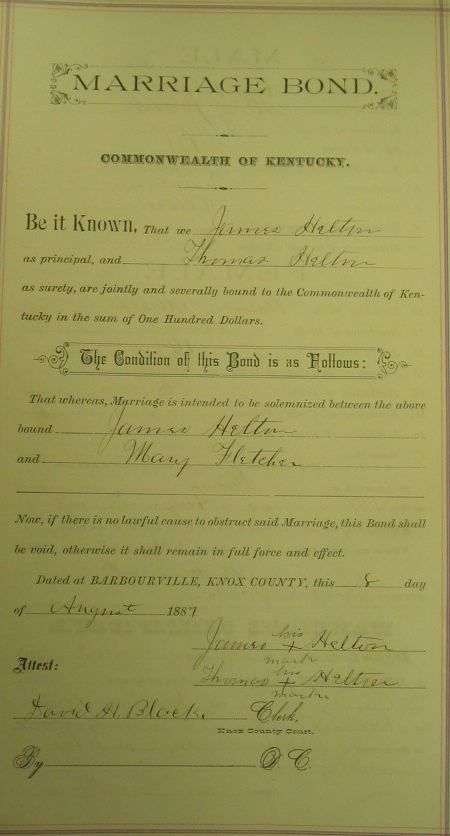 MARRIAGE BOND.
COMMONWEALTH OF KENTUCKY.
Be it Known, That we James Helton
as principal, and Thomas Helton
as surety, are jointly and severally bound to the Commonwealth of Ken-
tucky in the sum of One Hundred Dollars.
The Condition of this Bond is as Follows:
That whereas, Marriage is intended to be solemnized between the above
bound James Helton
and Mary Fletcher
Now, if there is no lawful cause to obstruct said Marriage, this Bond shall
be void, otherwise it shall remain in full force and effect.
Dated at BARBOURVILLE, KNOX COUNTY, this 8 day
of August 1887
his
James + Helton
mark
Attest:
his
Thomas + Helton
mark
David H. Clerk,
Knox County Court.
By D. C.